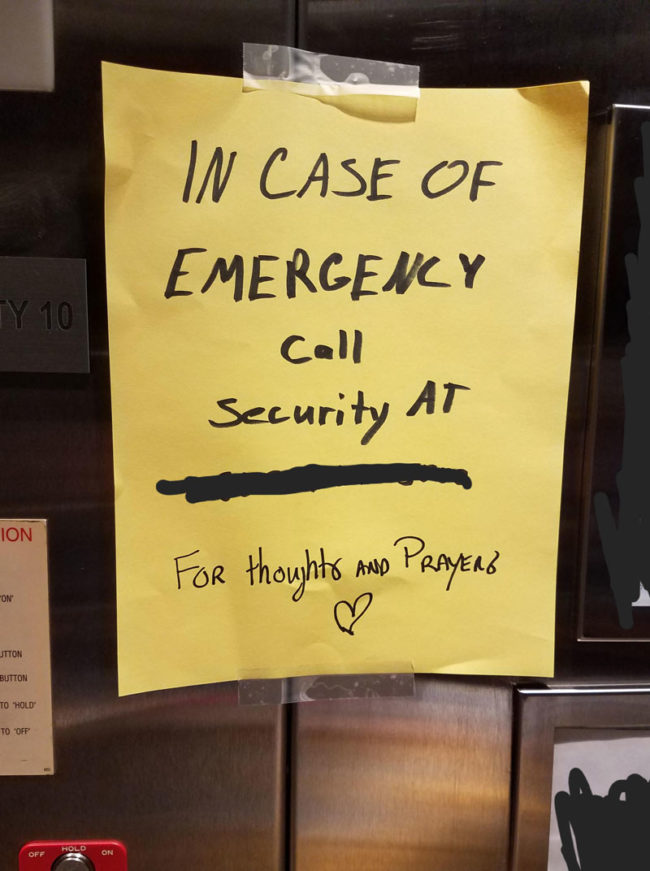 IN CASE OF
EMERGENCY
Call
Security AT
FOR thoughts AND PRAYERS
TY 10
ION
'ON'
UTTON
BUTTON
TO "HOLD"
TO "OFF"
OFF HOLD ON